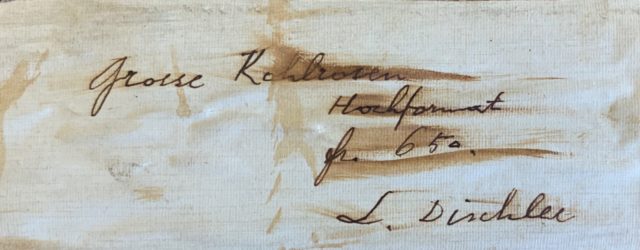 Grosse Kohlrosen
Hochformat
fr. 650.
L. Dischler